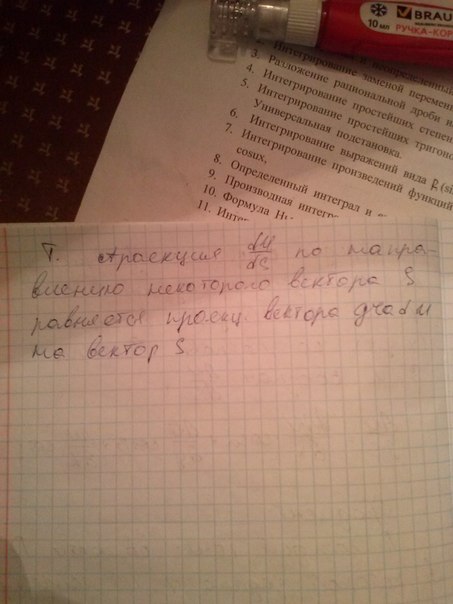 BRAU
10 мл
РУЧКА-КОР
Интегрирование и неопределенный
3. Интегрирование заменой перемен
4. Разложение рациональной дроби на
5. Интегрирование простейших степен
Интегрирование простейших тригоно
6. Универсальная подстановка.
7. Интегрирование выражений вида R (si
Интегрирование произведений функций
cosux,
8. Определенный интеграл и е
9. Производная интегр
10. Формула Нь
11. Инте
Т. проекция dU/dS по напра-
влению некоторого вектора S
равняется проекц. вектора grad u
на вектор S